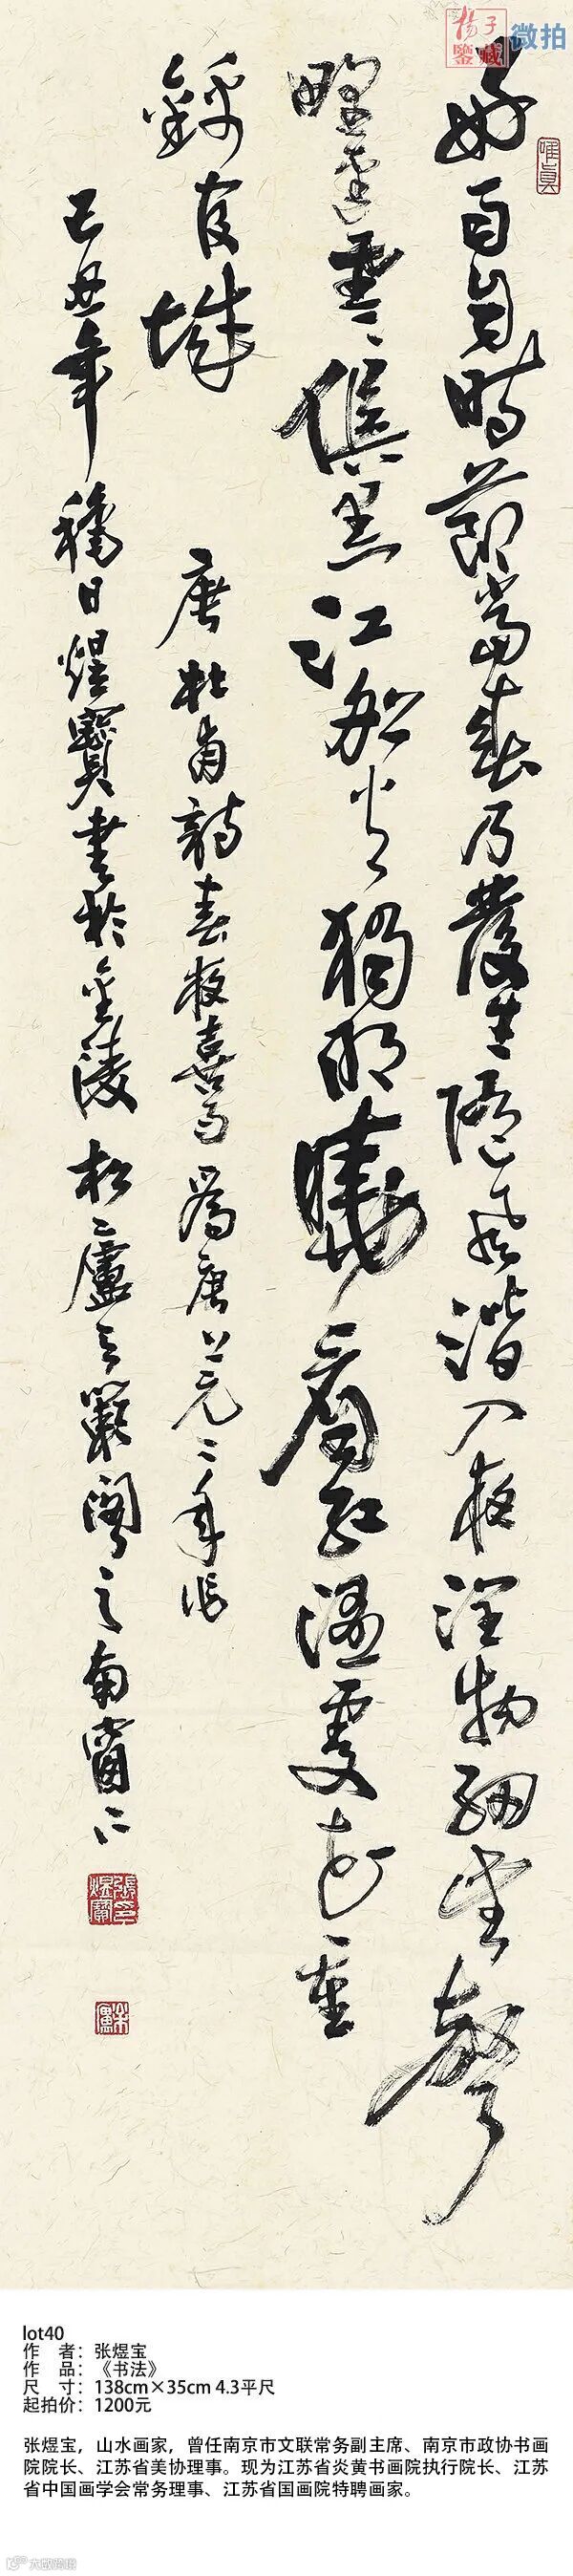 揚子
鑒藏
微拍
唯真
好雨知時節當春乃發生隨風潛入夜潤物細無聲
野逕雲俱黑江船火獨明曉看紅濕處花重
錦官城
唐杜甫詩春夜喜雨 為唐上元二年作
己丑年穐日煜寶書於金陵松廬之
閣之南窗
張煜寶印
lot40
作 者：张煜宝
作 品：《书法》
尺 寸：138cm×35cm 4.3平尺
起拍价：1200元
张煜宝，山水画家，曾任南京市文联常务副主席、南京市政协书画
院院长、江苏省美协理事。现为江苏省炎黄书画院执行院长、江苏
省中国画学会常务理事、江苏省国画院特聘画家。